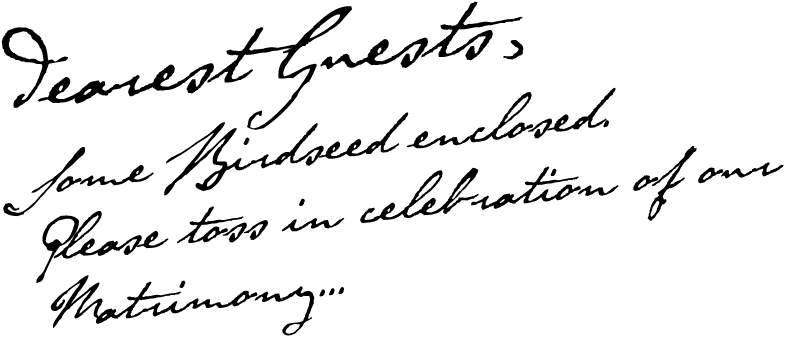 Dearest Guests,
Some Birdseed enclosed.
Please toss in celebration of our
Matrimony...